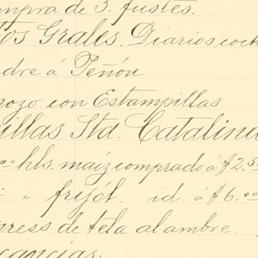 mpra de 3. fustes.
tos Grales. Diarios coch
dre á Peñón
pozo con Estampillas
illas Sta. Catalina
00 hls. maíz comprado á $2.50
" frijól. id. á $6.00
press de tela alambre.